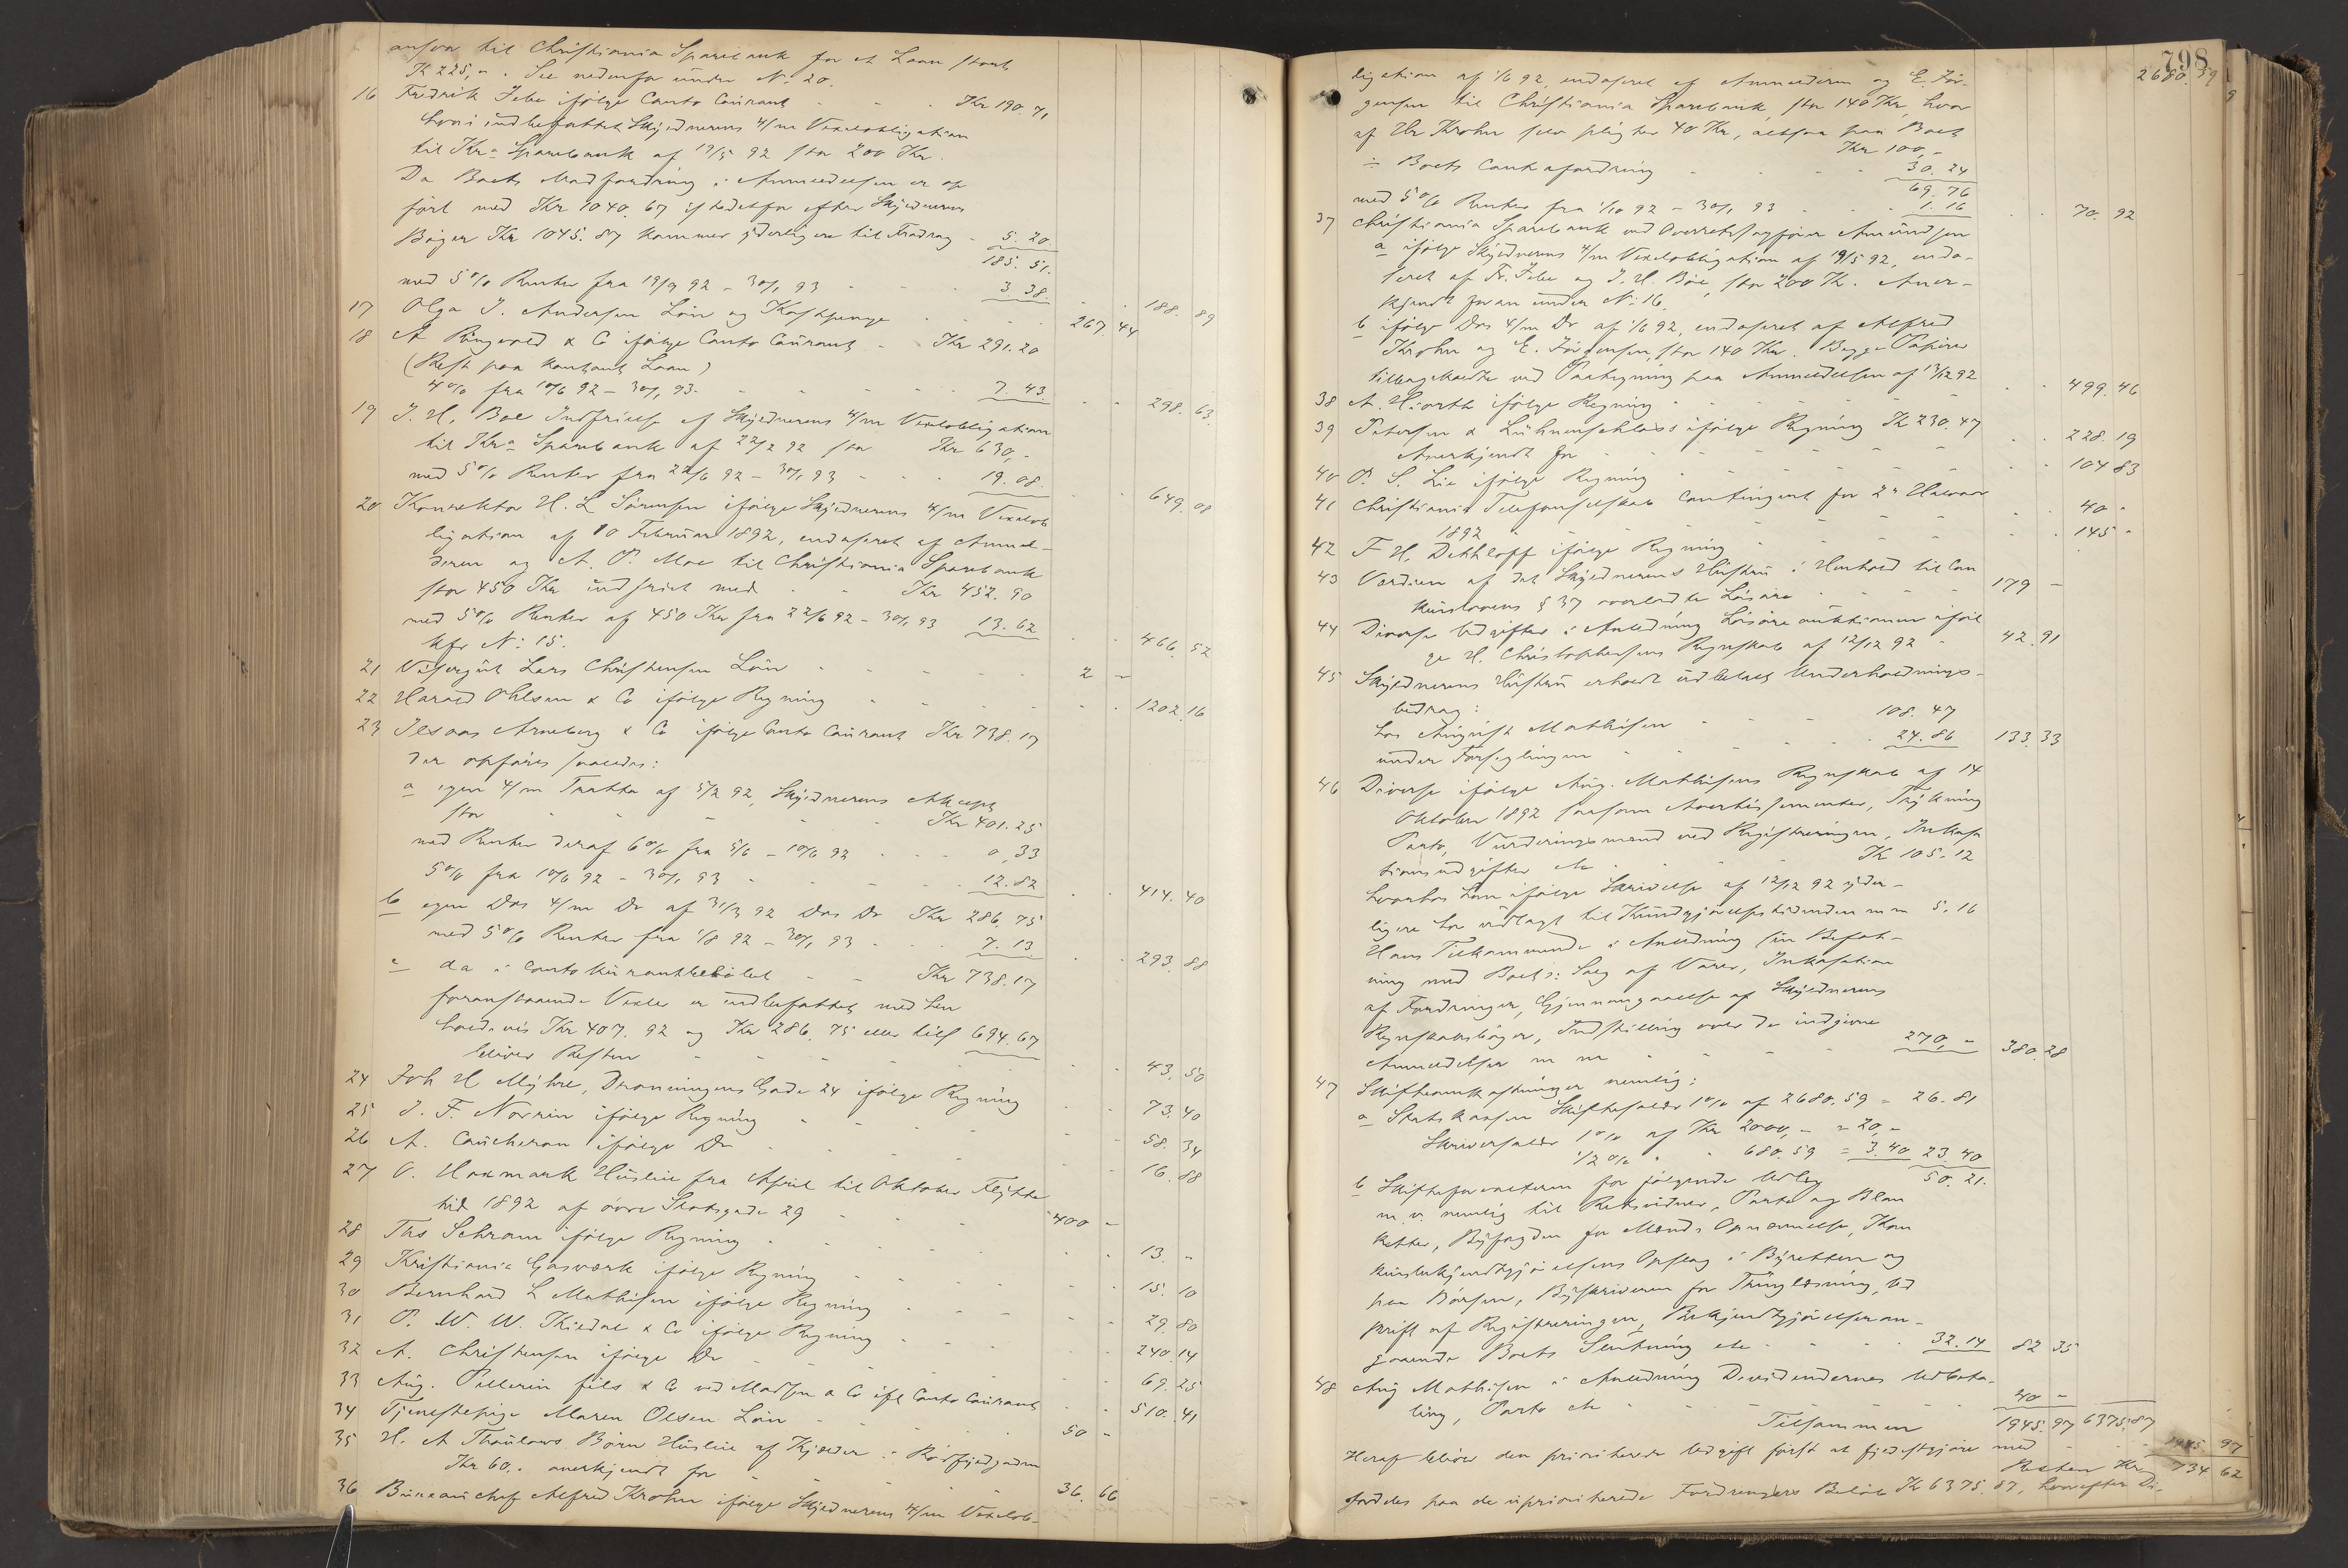 ansvar til Christiania Sparebank for et Laan stort
Kr 225,-. Se nedenfor under No 20.
16 Fredrik Jebe ifølge Conto Courant - - Kr 190.71
hvori indbefattet Skyldnerens 4/m Vexelobligation
til Kra Sparebank af 19/5 92 stor 200 Kr.
Da Boets Modfordring i Anmeldelsen er op
ført med Kr 1040.67 istedetfor efter Skyldnerens
Bøger Kr 1045.87 kommer yderligere til Fradrag - 5.20
185.51.
med 5% Renter fra 19/9 92 - 30/1 93 - - - 3.38. - - 188.89
17 Olga J. Andersen Løn og Kostpenge - - - 267.44
18 A Ringvold & Co ifølge Conto Courant - Kr 291.20
(Rest paa kontant Laan)
4% fra 10/6 92 - 30/1 93. - - - - 7.43. - - 298.63.
19 J. H. Boe Indfrielse af Skyldnerens 4/m Vexelobligation
til Kra Sparebank af 22/2 92 stor Kr 630,-
med 5% Renter fra 22/6 92 - 30/1 93 - - - 19.08. - - 649.08
20 Konrektor H. L Sørensen ifølge Skyldnerens 4/m Vexelob
ligation af 10 Februar 1892, endosseret af Anmel-
deren og A. P. Moe til Christiania Sparebank
stor 450 Kr indfriet med - - Kr 452.90
med 5% Renter af 450 Kr fra 22/6 92 - 30/1 93 13.62 - - 466.52
kfr No 15.
21 Visergut Lars Christensen Løn - - - - 2 -
22 Harald Ohlsen & Co ifølge Regning - - - - 1202.16
23 Ilsaas Arneberg & Co ifølge Conto Courant Kr 738.17
der opføres saaledes:
a egen 4/m Tratta af 5/2 92, Skyldnerens Accept
stor - - - - - Kr 401.25
med Renter deraf 6% fra 5/6 - 10/6 92 - - - 0,33
5% fra 10/6 92 - 30/1 93 - - - - 12.82 - - 414.40
b egen Dos 4/m Do af 31/3 92 Dos Do Kr 286.75
med 5% Renter fra 1/8 92 - 30/1 93 - - - 7.13. - - 293.88
c da i Contokurantbeløbet - - Kr 738.17
foranstaaende Vexler er indbefattet med hen
holdsvis Kr 407.92 og Kr 286.75 eller tils 694.67
bliver Resten - - - - 43.50
24 Joh H Myhre, Dronningens Gade 24 ifølge Regning - - 73.40
25 J. F. Norrin ifølge Regning - - - - 58.34
26 A. Caucheron ifølge Do - - - - 16.88
27 O. Hoxmark Husleie fra April til Oktober Flytte
tid 1892 af øvre Slotsgade 29 - - - 400 -
28 Ths Schram ifølge Regning - - - - 13.-
29 Kristiania Gasværk ifølge Regning - - - - 15.10
30 Bernhard L Mathisen ifølge Regning - - - 29.80
31 P. W. W. Kildal & Co ifølge Regning - - - 240.14
32 A. Christensen ifølge Do - - - - 69.25
33 Aug. Pellerin fils & Co ved Madsen & Co ifl Conto Courant - 510.41
34 Tjenestepige Maren Olsen Løn - - - 50 -
35 H. A Thaulows Børn Husleie af Kjælder i Rosfjeldgaden
Kr 60,- anerkjendt for - - - 36.66
36 Bureauchef Alfred Krohn ifølge Skyldnerens 4/m Vexelob-
798
2680.59
ligation af 1/6 92, endosseret af Anmelderen og E. Jør-
gensen til Christiania Sparebank, stor 140 Kr, hvor
af Hr Krohn selv pligter 40 Kr, altsaa paa Boet
Kr 100,-
÷ Boets Contrafordring - - - - 30.24
69.76
med 5% Renter fra 1/10 92 - 30/1 93 - - - 1.16 - - 70.92
37 Christiania Sparebank ved Overretssagfører Amundsen
a ifølge Skyldnerens 4/m Vexelobligation af 19/5 92, endo-
seret af Fr. Jebe og J. H. Boe, stor 200 Kr. Aner-
kjendt foran under No 16.
b ifølge Dos 4/m Do af 1/6 92, endosseret af Alfred
Krohn og E. Jørgensen, stor 140 Kr. Begge Papirer
tilbageholdte ved Paategning paa Anmeldelsen af 13/12 92
38 A. Hiorth ifølge Regning - - - - 499.46
39 Petersen & Lühnenschloss ifølge Regning Kr 230.47
Anerkjendt for - - - - 228.19
40 P. S. Lie ifølge Regning - - - - 104 83
41 Christiania Telefonselskab Contingent for 2t Halvaar
1892 - - - - 40 -
42 F H. Dethloff ifølge Regning - - - - 145 -
43 Værdien af det Skyldnerens Hustru i Henhold til Con
kurslovens § 37 overladte Løsøre - - - 179 -
44 Diverse Udgifter i Anledning Løsøreauktionen iføl
ge H. Christophersens Regnskab af 12/12 92 - 42.91
45 Skyldnerens Hustru erholdt udbetalt Underholdnings-
bidrag:
hos August Mathisen - - - 108.47
under Forseglingen - - - 24.86 133.33
46 Diverse ifølge Aug. Mathisens Regnskab af 14
Oktober 1892 saasom Avertissementer, Trykning
Porto, Vurderingsmænd ved Registreringen, Inkass
tionsudgifter etc - - - Kr 105.12
hvorhos han ifølge Skrivelse af 12/12 92 yder-
ligere har udlagt til Kundgjørelsestidenden m m 5.16
Hans Tilkommende i Anledning sin Befat-
ning med Boet: Salg af Varer, Inkassation
af Fordringer, Gjennemgaaelse af Skyldnerens
Regnskabsbøger, Indstilling over de indgivne
Anmeldelser m m - - - 270,- 380.28
47 Skifteomkostninger nemlig:
a Statskassen Skiftesalær 1% af 2680.59 = 26.81
Skriversalær 1% af Kr 2000,- = 20,-
1/2% " " 680.59 = 3.40 23.40
50.21.
b Skifteforvalteren for følgende Udlæg
m v. nemlig til Retsvidner, Porto og Blan
ketter, Byfogden for Mænds Opnævnelse, Kon
kursbekjendtgjørelsens Opslag i Byretten og
paa Børsen, Byskriveren for Thinglæsning, Ud
skrift af Registreringen, Bekjendtgjørelser an-
gaaende Boets Slutning etc - - - 32.14 82 35
48 Aug Mathisen i Anledning Dividendernes Udbeta-
ling, Porto etc - - - - 40 -
Tilsammen 1945.97 6375.87
Heraf bliver den prioriterede Udgift først at fyldestgjøre med - - - 1945 97
Resten Kr 734 62
fordeles paa de uprioriterede Fordringers Beløb Kr 6375.87, hvorefter Di-